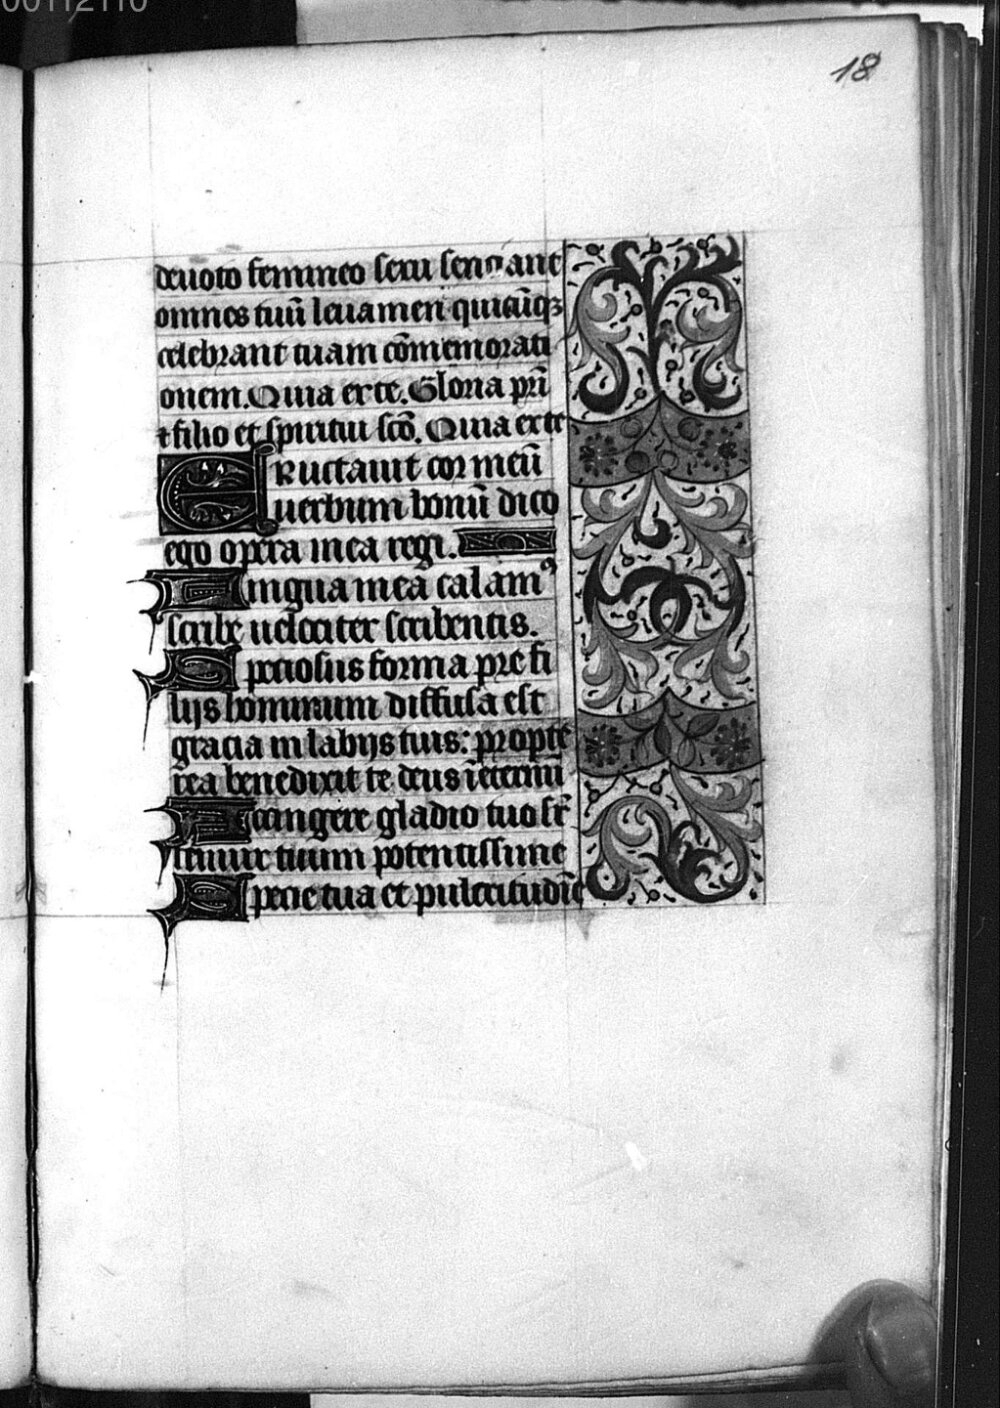 00112110
18
deuoto femineo sexu senciant
omnes tuū leuamen quicūqꝫ
celebrant tuam cōmemorati
onem. Quia ex te. Gloria pr̄i
⁊ filio et spiritui scō. Quia ex te
ERuctauit cor meū
uerbum bonū dico
ego opera mea regi.
Lingua mea calamꝰ
scribe uelociter scribentis.
Speciosus forma pre fi
lijs hominum diffusa est
gracia in labijs tuis: propte
rea benedixit te deus ī eternū
Accingere gladio tuo sr̄
femur tuum potentissime
Specie tua et pulcritudīe